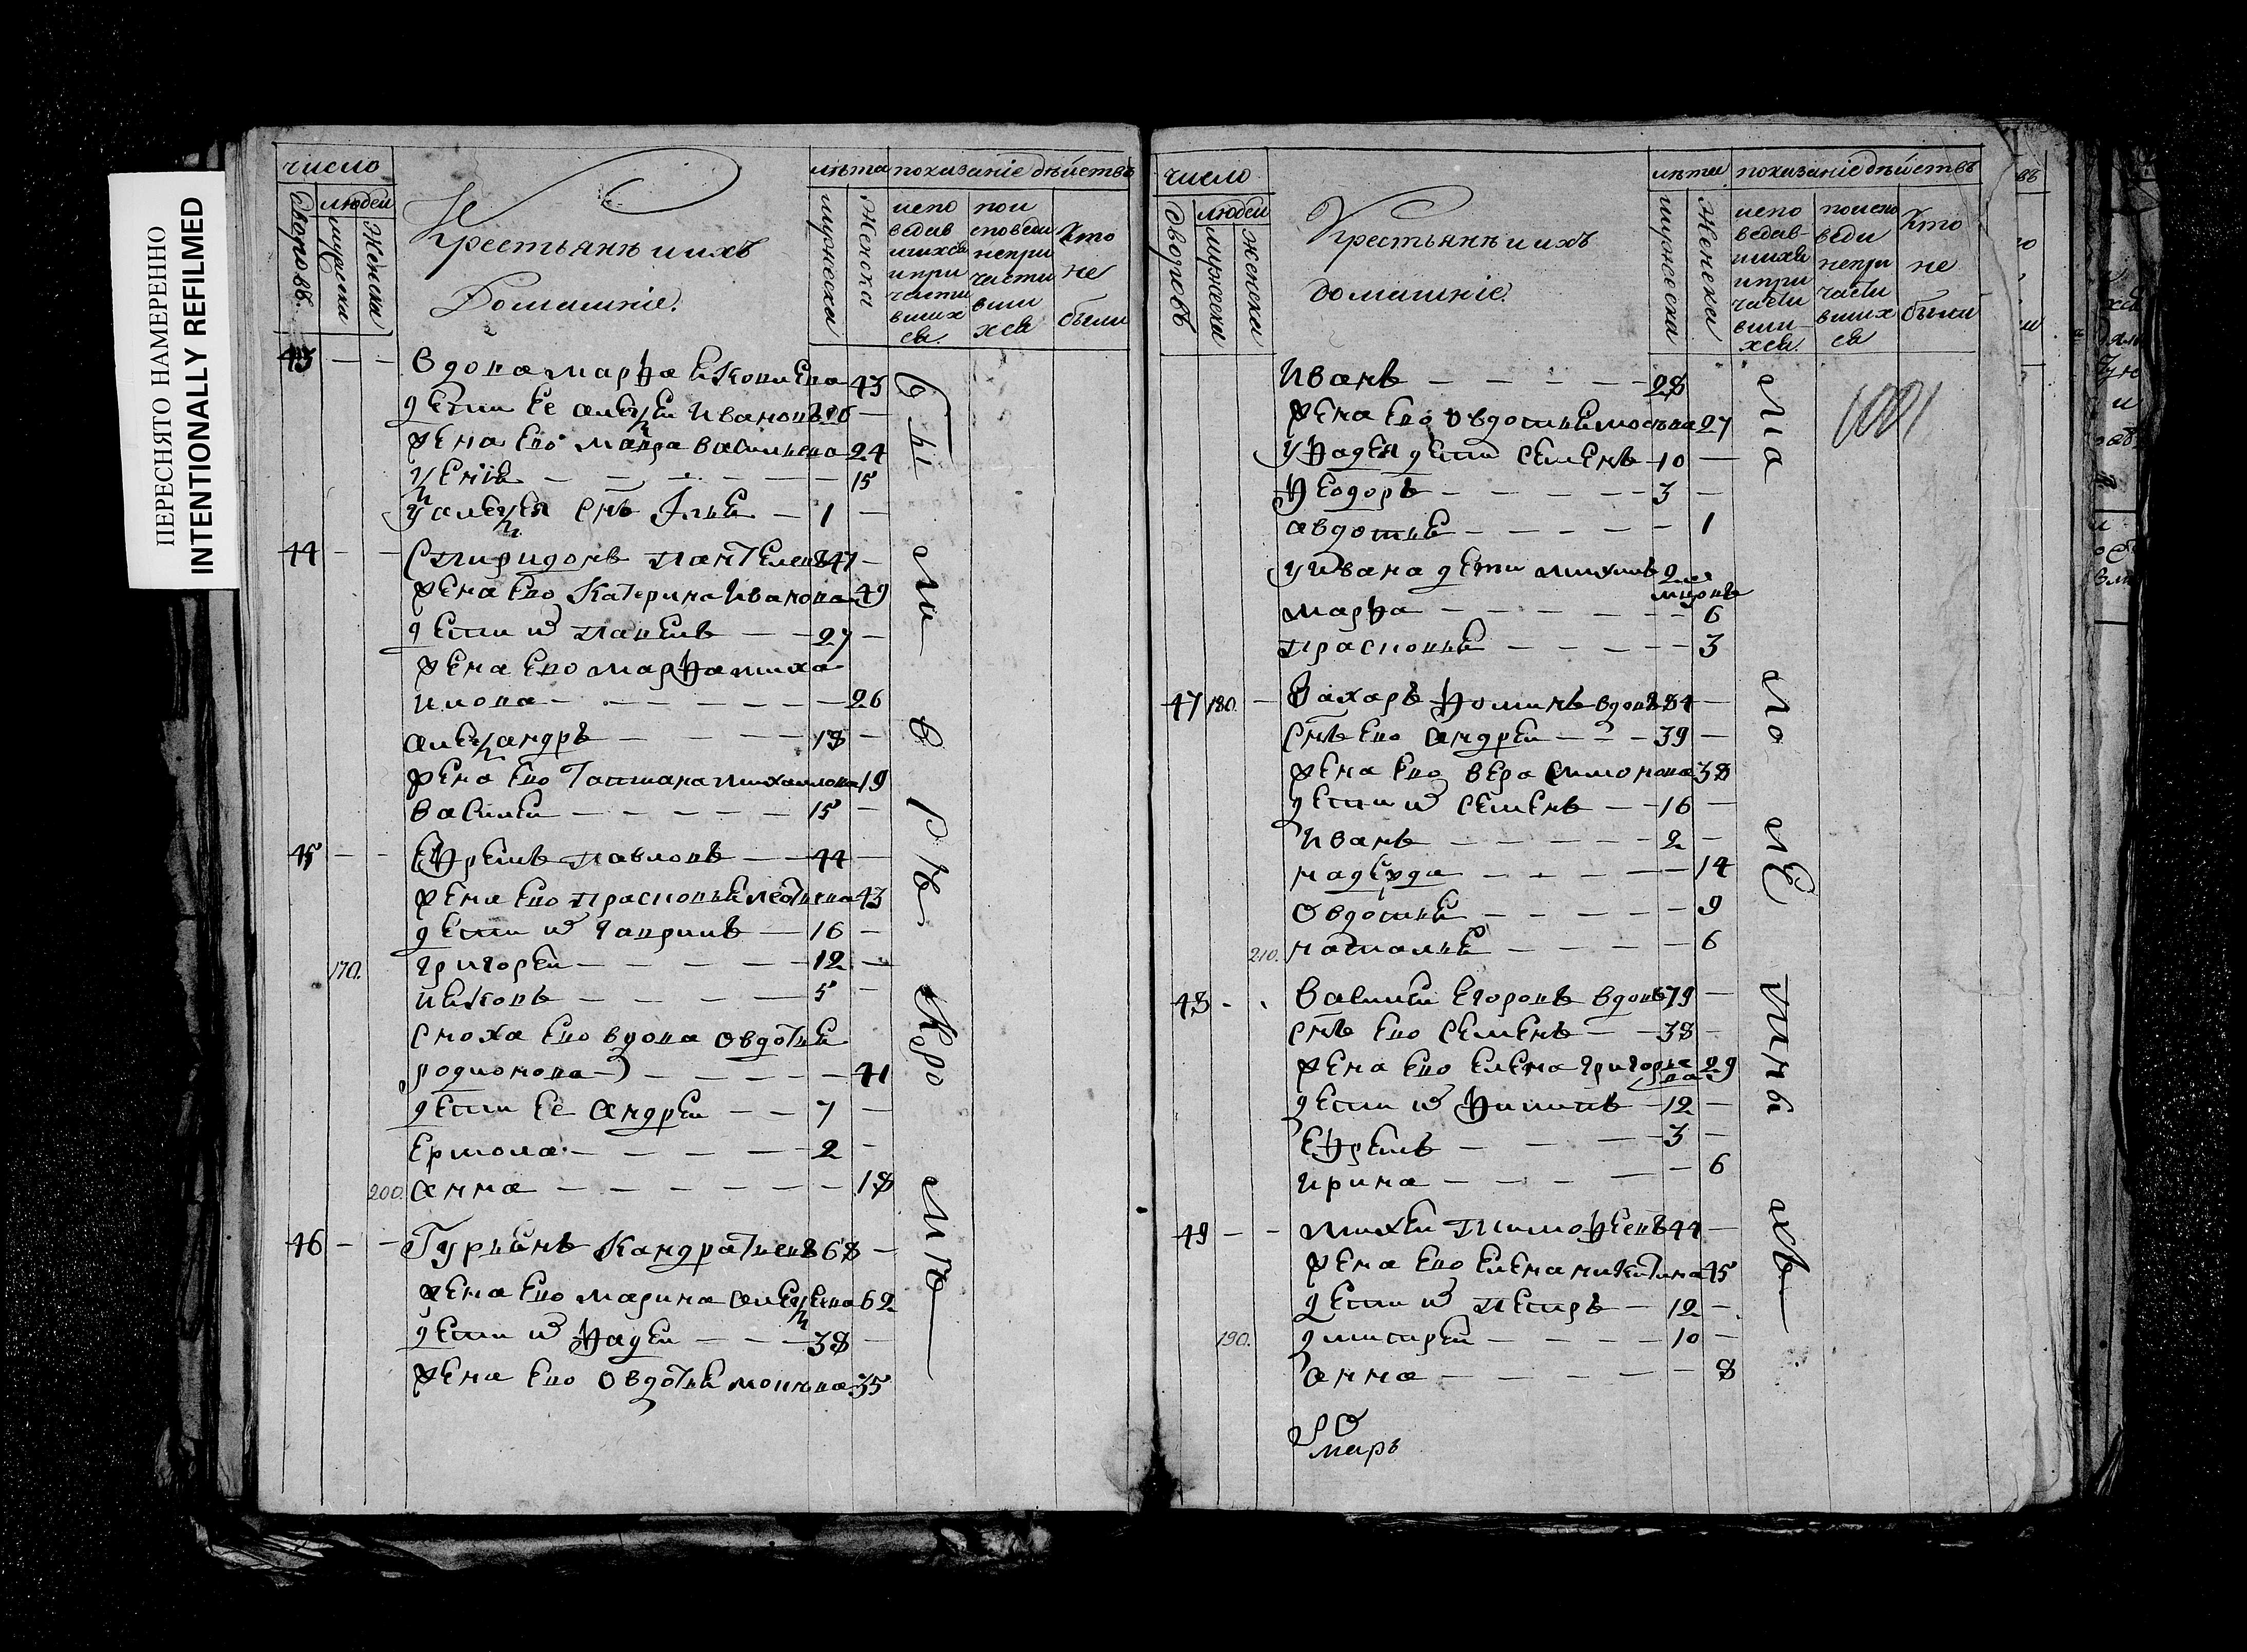 ПЕРЕСНЯТО НАМЕРЕННО
INTENTIONALLY REFILMED
число
людей
дворовъ.
мужеска
женска
Крестьянѣ и ихъ
Домашніе.
лѣта
показаніе дѣйствъ
мужеска
женска
испо
ведав
шихся
и при
части
вших
ся.
пои
споведи
непри
части
вши
хся
Кто
не
были
43 — — Вдова марѳа 43
дети ее алеѯеи Ивановъ 26 —
жена ево мавра васильева 24
ѯенія — — — 15
у алеѯея снъ Илья — 1 —
44 — — Спиридонъ пантелеевъ 47 —
жена ево Катерина Иванова 49
дети ихъ павелъ — — 27 —
жена ево марѳа миха
илова — — — 26
алеѯандръ — — — 18 —
жена ево Татиана михаилова 19
василеи — — — 15 —
45 — — Еѳремъ павловъ — — 44 —
жена ево прасковья 43
дети ихъ гаврилъ — 16 —
170. григореи — — — 12 —
— — — 5 —
сноха ево вдова овдотья
родионова — — — 41
дети ее андреи — — 7 —
Ермола — — — 2 —
200. анна — — — 18
46 — — Гурьянъ Кандратьевъ 68 —
жена ево марина алеѯеева 62
дети ихъ ѳадеи — — 38 —
жена ево овдотья 35
сы ли в рѣ кро мѣ
число
людей
дворовъ
мужеска
женска
Крестьянѣ и ихъ
домашніе.
лѣта
показаніе дѣйствъ
мужеска
женска
испо
ведав-
шихся
и при
части
вши-
хся.
поиспо
веди
непри
части
вших
ся
Кто
не
были
Иванъ — — — 28
жена ево овдотья 27
у ѳадея дети семенъ 10 —
ѳеодоръ — — — 3 —
авдотья — — — 1
у ивана дети михаилъ 2
марѳа — — — 6
прасковья — — — 3
47 180. — Захаръ ѳоминъ вдовъ 84 —
снъ ево андреи — — 39 —
жена ево вера симонова 38
дети ихъ семенъ — — 16 —
Иванъ — — — 2 —
надежда — — — 14
овдотья — — — 9
210. наталья — — — 6
48 - - Василеи Егоровъ вдовъ 79 —
снъ ево семенъ — — 38 —
жена ево елена григорье
ва 29
дети ихъ ѳилипъ — 12 —
Еѳремъ — — — 3 —
Ирина — — — 6
49 — — михеи тимоѳеевъ 44 —
жена ево елена никитина 45
дети ихъ петръ — 12 —
190. дмитреи — — — 10 —
анна — — — 8
ма ло ле тны хъ
марь